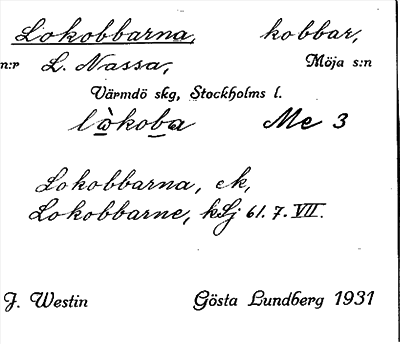 Lokobbarna, kobbar,
n:r L. Nassa, Möja s:n
Värmdö skg, Stockholms l.
lòkoba Me 3
Lokobbarna, ek,
Lokobbarne, kSj 61. 7. VII.
J. Westin Gösta Lundberg 1931